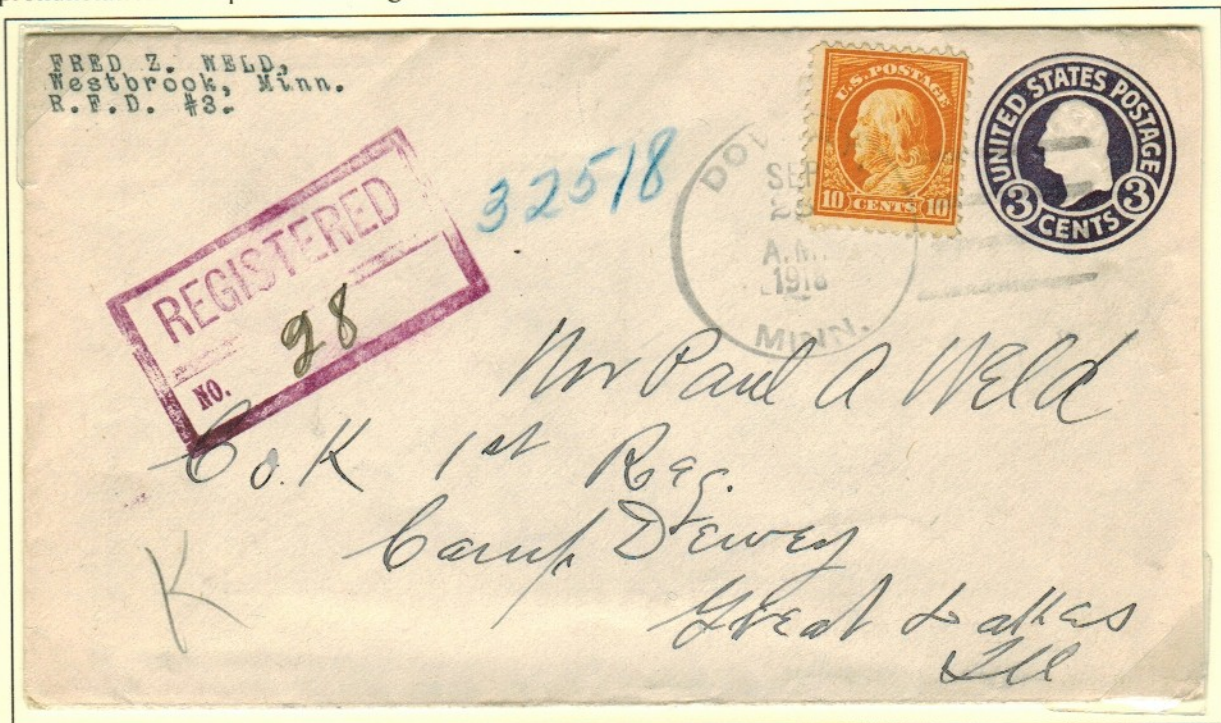 FRED Z. WELD,
Westbrook, Minn.
R.F.D. #3.
REGISTERED
NO. 98
32518
DO
SEP
A.M.
1918
MINN.
U.S. POSTAGE
10 CENTS 10
UNITED STATES POSTAGE
3 CENTS 3
Mr Paul A Weld
Co. K 1st Reg.
Camp Dewey
Great Lakes
Ill
K